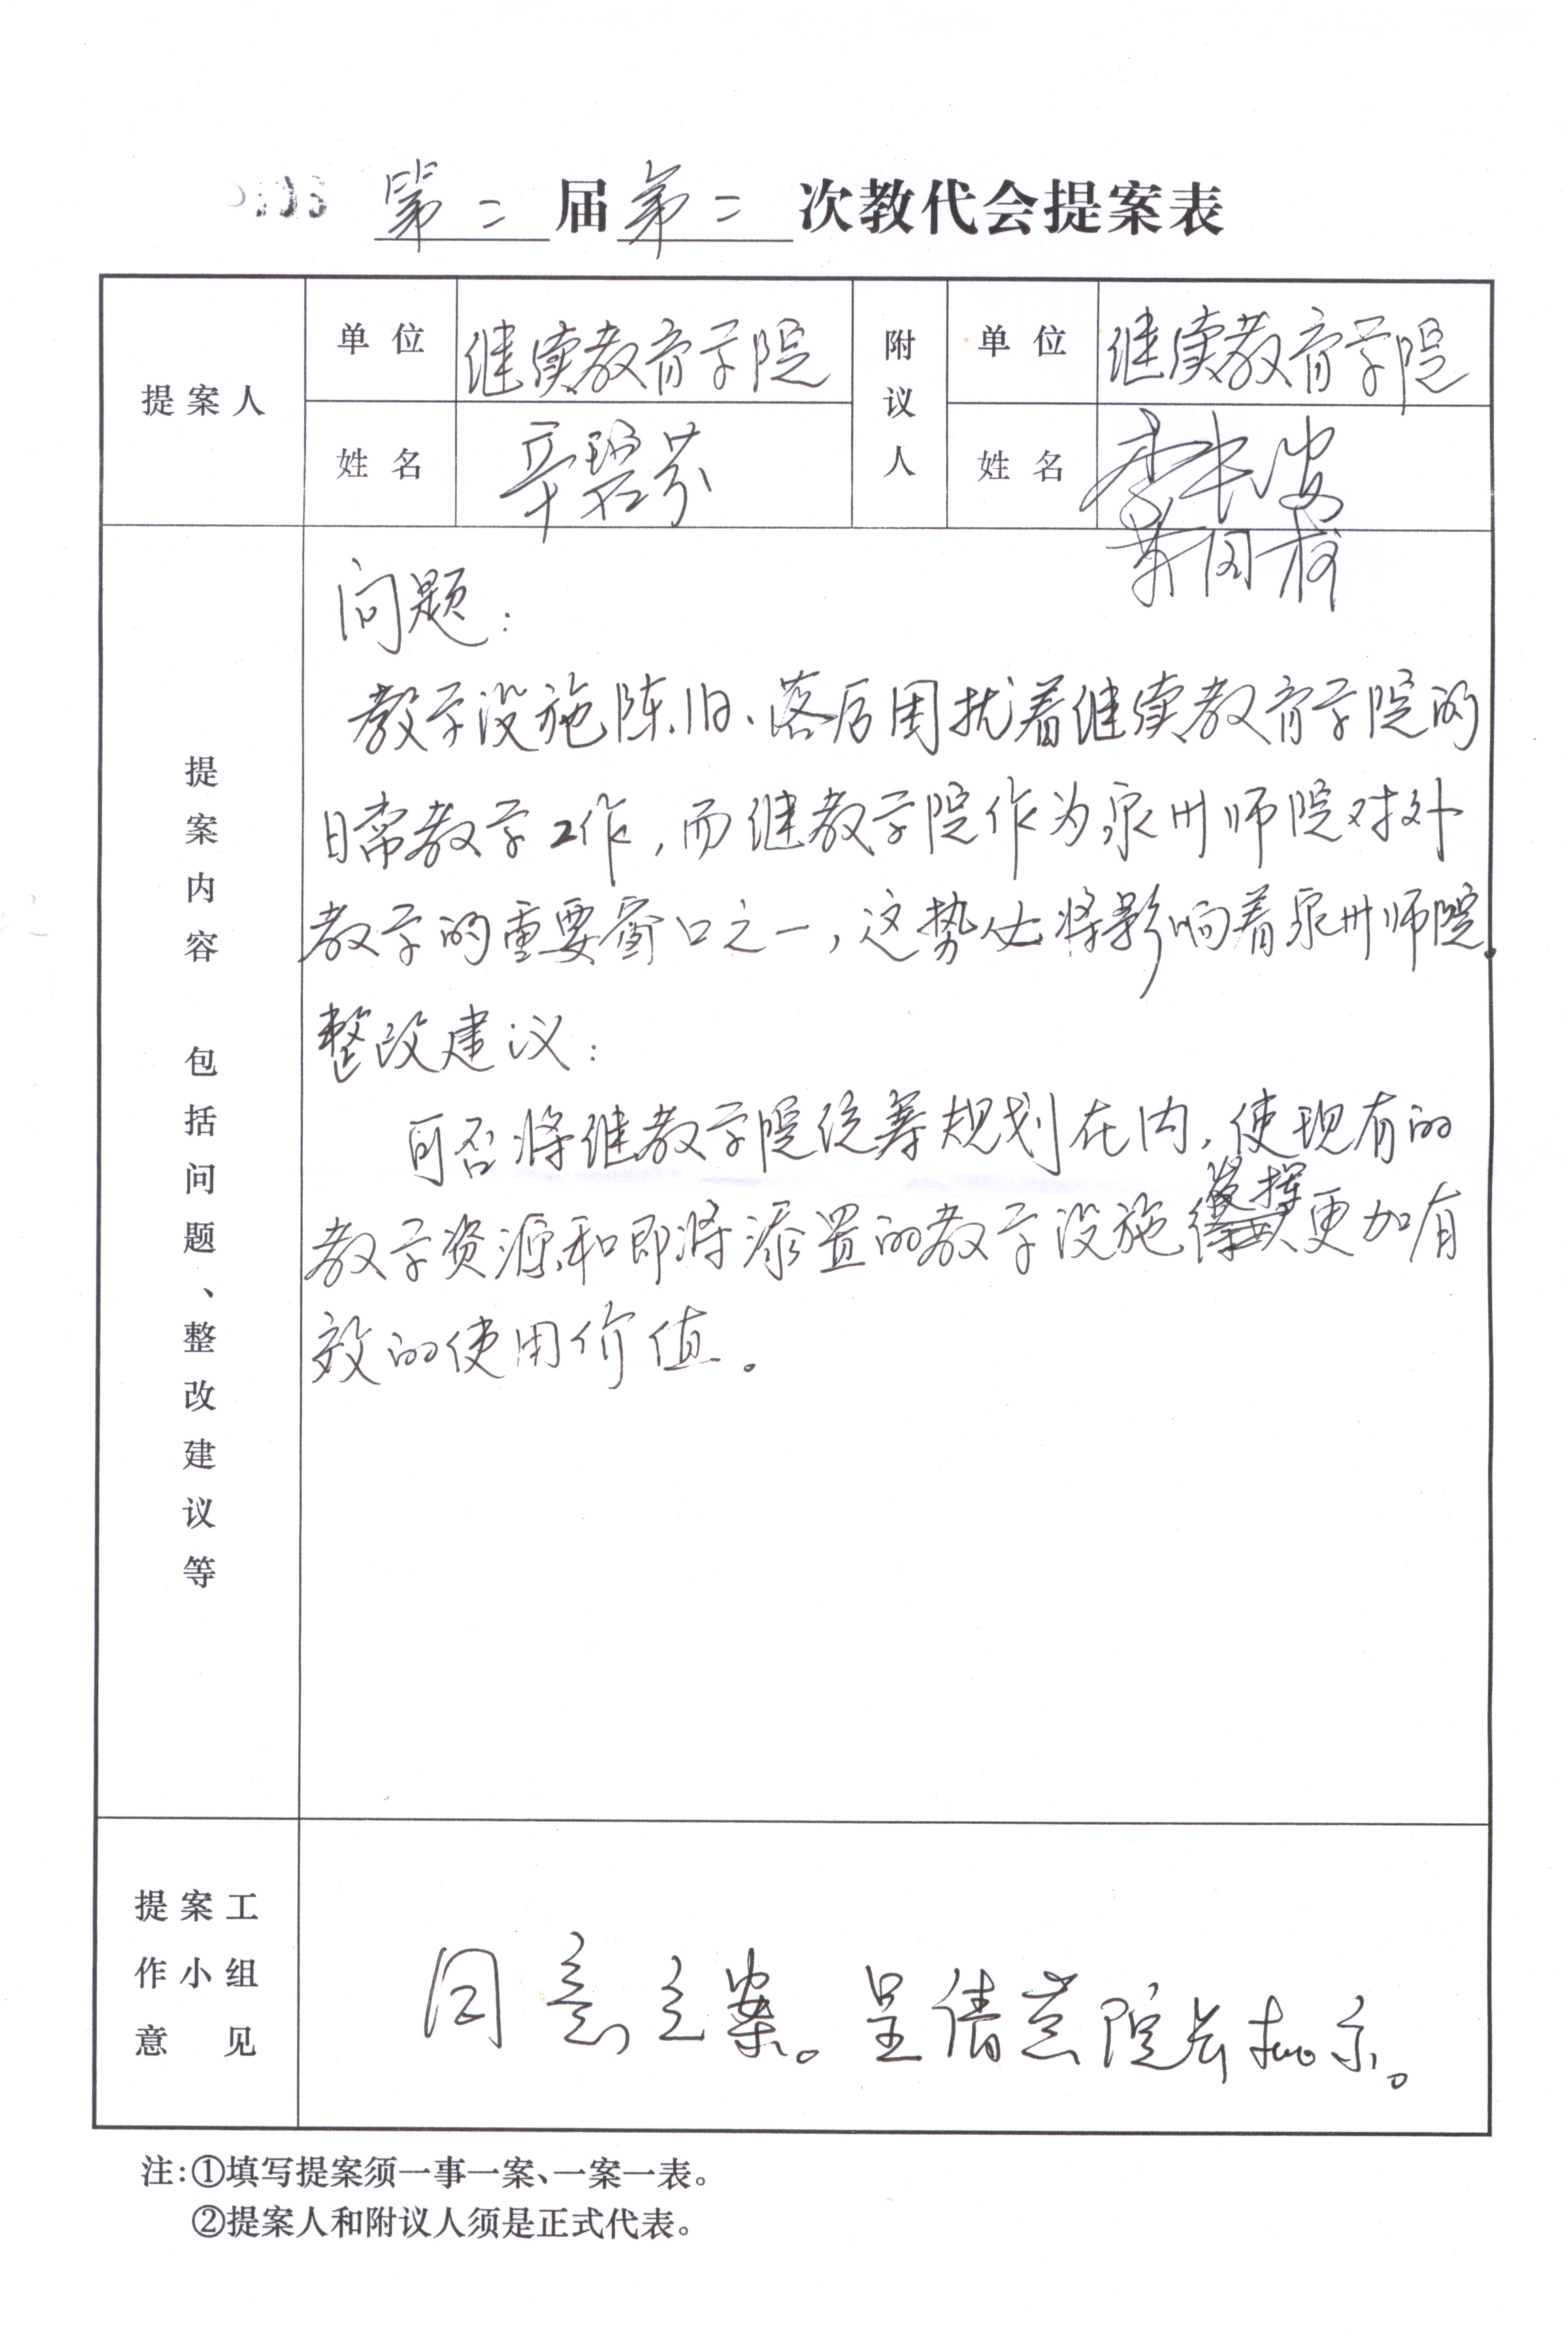 第二届第二次教代会提案表
提案人 单位 继续教育学院 附议人 单位 继续教育学院
姓名 辛碧芬 姓名 李长安
提案内容 包括问题、整改建议等
问题:
教学设施陈旧、落后困扰着继续教育学院的
日常教学工作,而继教学院作为泉州师院对外
教学的重要窗口之一,这势必将影响着泉州师院.
整改建议:
可否将继教学院统筹规划在内,使现有的
发挥
教学资源和即将添置的教学设施更加有
效的使用价值。
提案工
作小组
意见
同意立案。呈倩芸院长批示。
注:①填写提案须一事一案、一案一表。
②提案人和附议人须是正式代表。